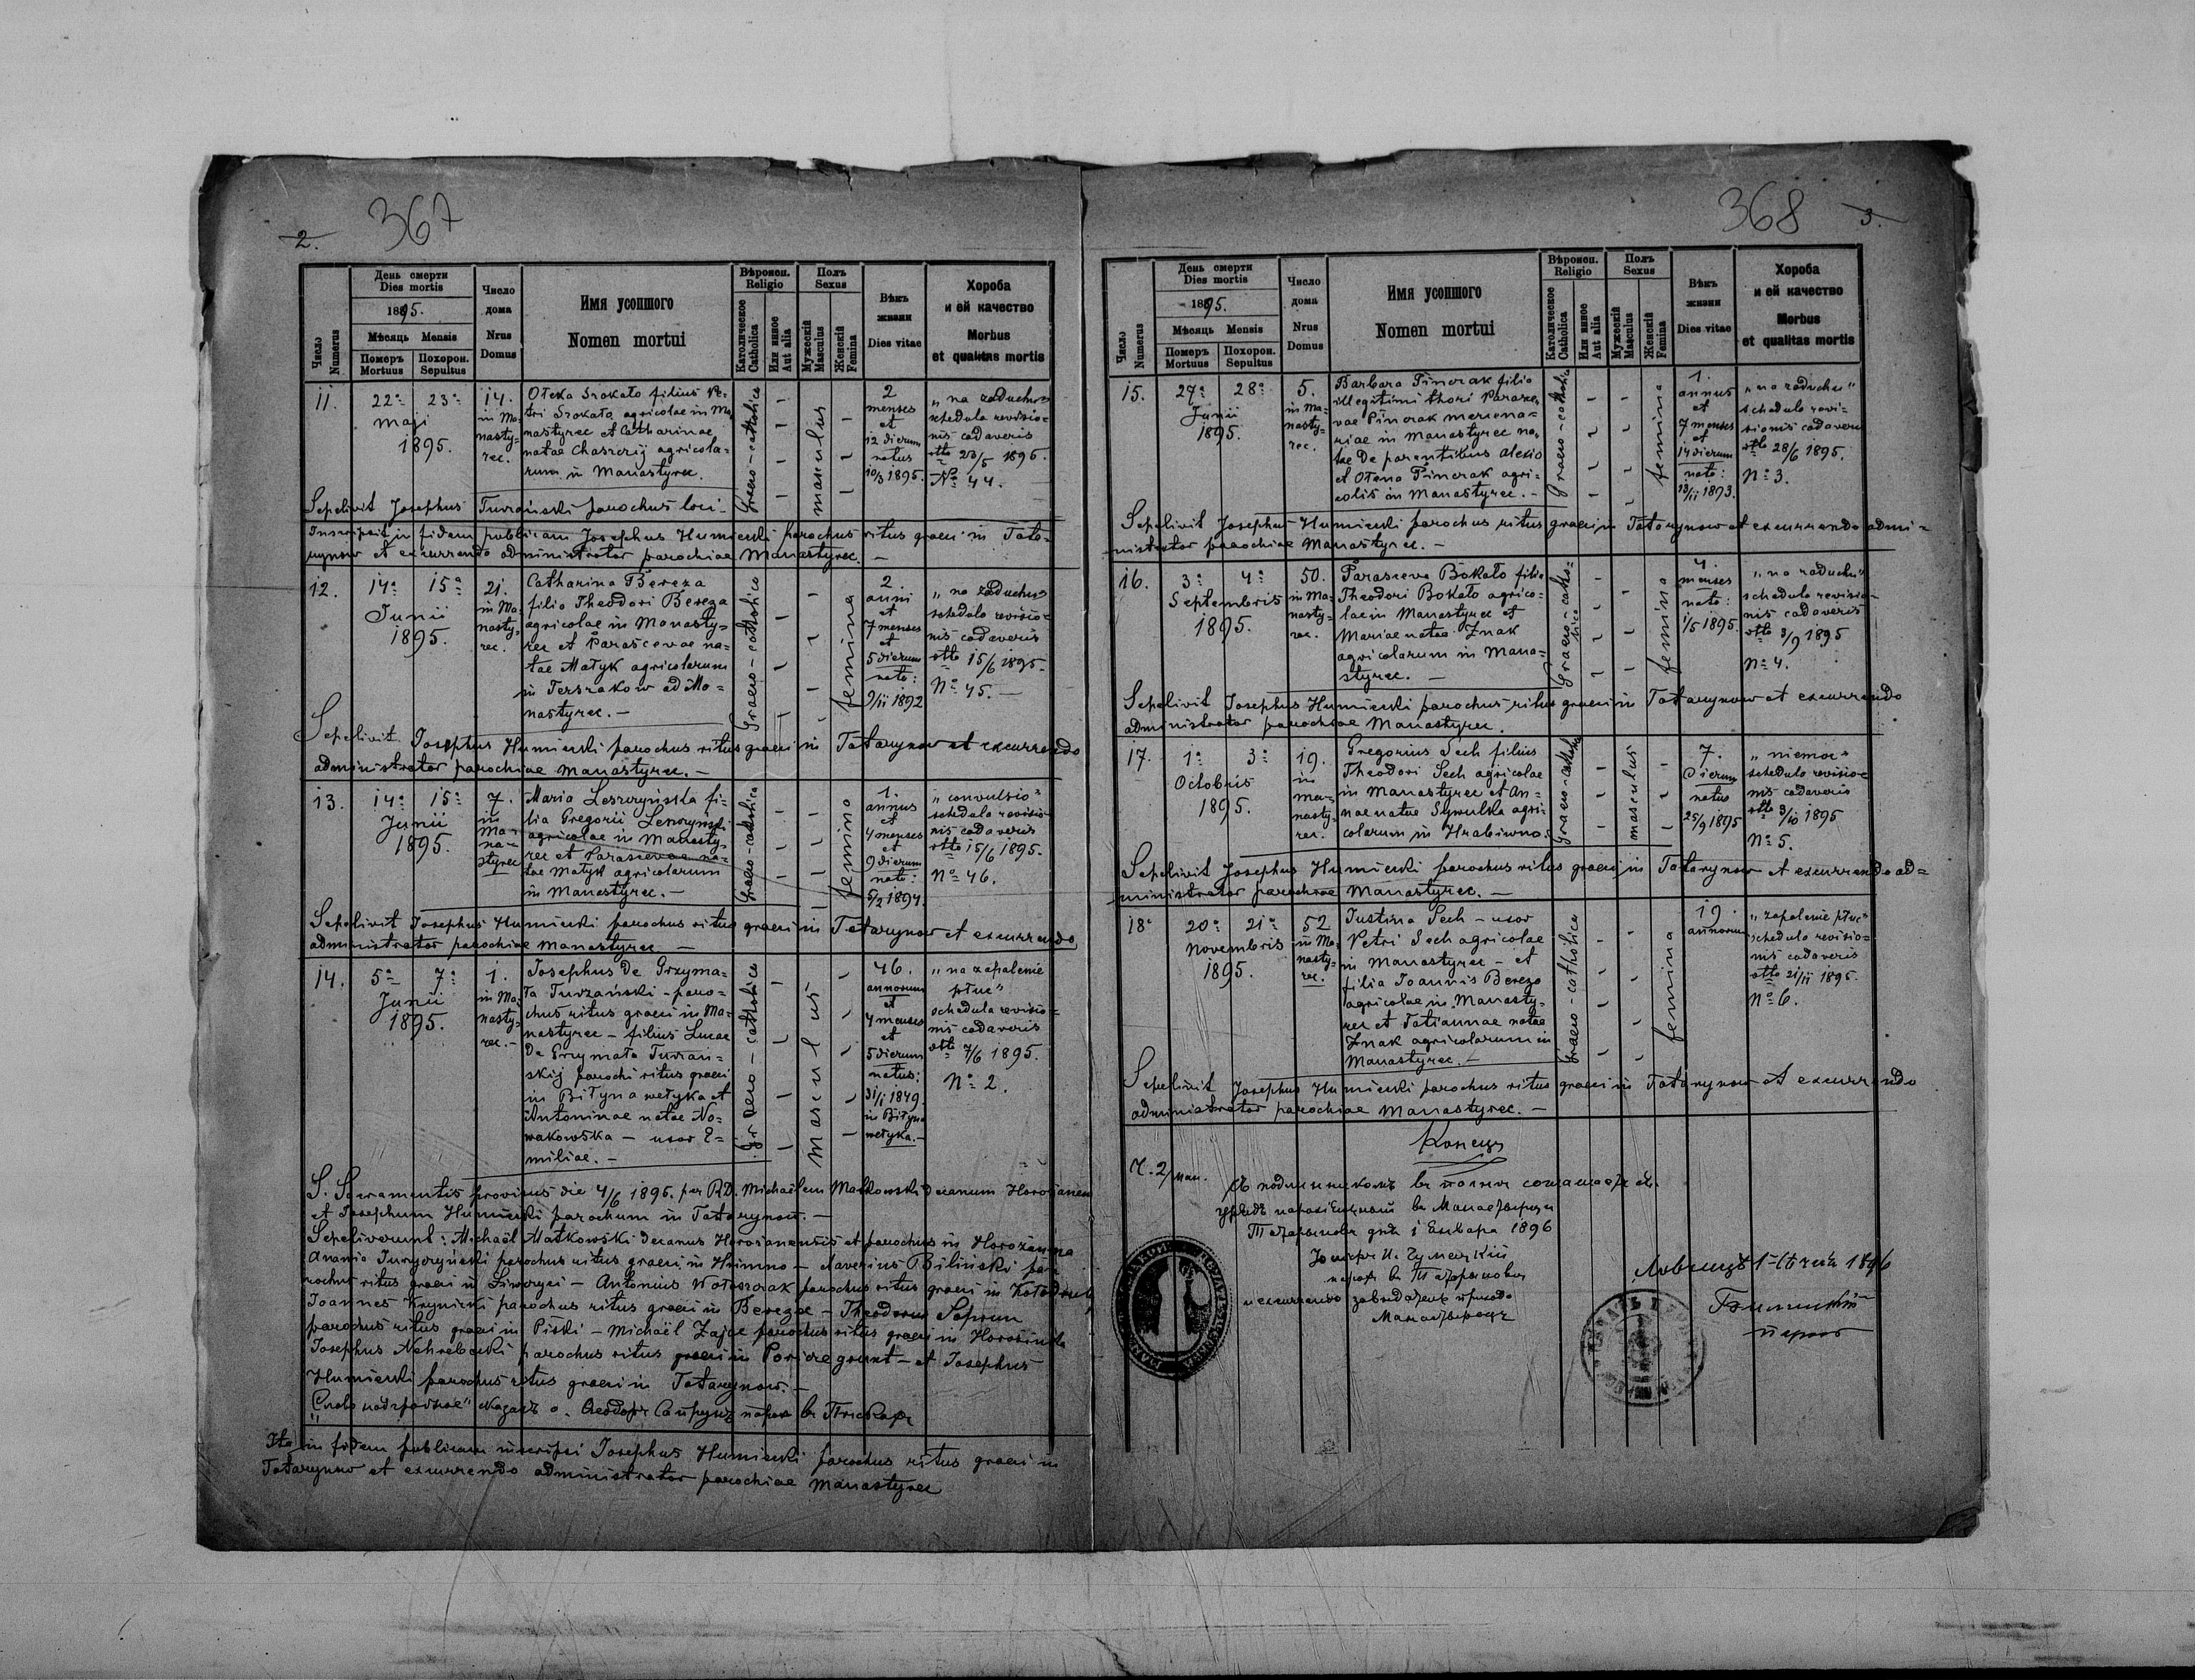 2.
367
День смерти
Dies mortis
1895.
Мѣсяць Mensis
Число
Numerus
Померъ
Mortuus
Похорон.
Sepultus
Число
дома
Nrus
Domus
Имя усопшого
Nomen mortui
Вѣронсп.
Religio
Католическое
Catholica
Или иное
Aut alia
Полъ
Sexus
Мужескій
Masculus
Женскій
Femina
Вѣкъ
жизни
Dies vitae
Хороба
и ей качество
Morbus
et qualitas mortis
11. 22a 23a
maji
1895.
14.
in Ma-
nasty-
rec.
Oteka Srokało filius Pe-
tri Srokało agricolae in Ma-
nastyrec et Catharinae
natae Chaszczij agricola-
rum in Manastyrec.
Graeco-catholica
masculus
2
menses
et
12 dierum
natus
10/3 1895.
„na zaduchu"
schedula revisio-
nis cadaveris
dtto 23/5 1895.
No 44.
Sepelivit Josephus Turzański parochus loci
Inscripsit in fidem publicam Josephus Humiecki parochus ritus graeci in Tata-
rynow et excurrendo administrator parochiae Manastyrec. —
12. 14a 15a
Junii
1895.
21.
in Ma-
nasty-
rec.
Catharina Bereza
filia Theodori Bereza
agricolae in Monasty-
rec et Parascevae na-
tae Matyk agricolarum
in Terszakow ad Mo-
nastyrec. —
Graeco-catholica
femina
2
anni
et
7 menses
et
5 dierum
nata:
9/11 1892
„na zaduchu"
schedula revisio-
nis cadaveris
dtto 15/6 1895.
No 45. —
Sepelivit Josephus Humiecki parochus ritus graeci in Tatarynow et excurrendo
administrator parochiae Manastyrec. —
13. 14a 15a
Junii
1895.
7.
in
Ma-
na-
styrec
Maria Leszczyńska fi-
lia Gregorii Leszczyński
agricolae in Manasty-
rec et Parascevae na-
tae Matyk agricolarum
in Manastyrec. —
Graeco-catholica
femina
1.
annus
et
4 menses
et
9 dierum
nata:
5/2 1894.
„convulsio"
schedula revisio-
nis cadaveris
dtto 15/6 1895.
No 46.
Sepelivit Josephus Humiecki parochus ritus graeci in Tatarynow et excurrendo
administrator parochiae Manastyrec —
14. 5a 7a
Junii
1895.
1.
in Ma-
nasty-
rec. —
Josephus De Grzyma-
ła Turzański - paro-
chus ritus graeci in Ma-
nastyrec — filius Lucae
De Grzymała Turzań-
skij parochi ritus graeci
in Biłyna wełyka et
Antoninae natae No-
wakowska — uxor E-
miliae. —
Graeco-catholica
masculus
46.
annorum
et
4 menses
et
5 dierum
natus:
31/1 1849.
in Biłyna
wełyka. —
„na zapalenie
płuc"
schedula revisio-
nis cadaveris
dtto 7/6 1895.
No 2.
S. Sacramentis provisus die 4/6 1895. per RD. Michaëlem Matkowski decanum Horożanen
et Josephum Humiecki parochum in Tatarynow. —
Sepeliverunt: Michaël Matkowski decanus Horożanensis et parochus in Horożanna
parochus ritus graeci in Hrimno — Xaverius Biliński pa-
rochus ritus graeci in — Antonius Wołoszczak parochus ritus graeci in Kołodruby
Joannes Krynicki parochus ritus graeci in Berezec — Theodorus Saprun
parochus ritus graeci in Piski — Michaël Zając parochus ritus graeci in
Josephus Nehrebecki parochus ritus graeci in Poricze grunt — et Josephus
Humiecki parochus ritus graeci in Tatarynow. —
„Слово надгробное" сказалъ о. Ѳеодоръ Сапрунъ парох въ
Ita in fidem publicam inscripsi Josephus Humiecki parochus ritus graeci in
Tatarynow et excurrendo administrator parochiae Manastyrec
368
3.
День смерти
Dies mortis
1895.
Мѣсяць Mensis
Число
Numerus
Померъ
Mortuus
Похорон.
Sepultus
Число
дома
Nrus
Domus
Имя усопшого
Nomen mortui
Вѣронсп.
Religio
Католическое
Catholica
Или иное
Aut alia
Полъ
Sexus
Мужескій
Masculus
Женскій
Femina
Вѣкъ
жизни
Dies vitae
Хороба
и ей качество
Morbus
et qualitas mortis
15. 27a 28a
Junii
1895.
5.
in Ma-
nasty-
rec.
Barbara Pinczak filia
illegitimi thori Parasce-
vae Pinczak mercena-
riae in Manastyrec na-
tae De parentibus Alexio
et Olena Pinczak agri-
colis in Manastyrec. —
Graeco-catholica
femina
1.
annus
et
7 menses
et
14 dierum
nata:
13/11 1893.
„na zaduchu"
schedula revi-
sionis cadaveris
dtto 28/6 1895.
No 3.
Sepelivit Josephus Humiecki parochus ritus graeci in Tatarynow et excurrendo admi-
nistrator parochiae Manastyrec. —
16. 3a 4a
Septembris
1895.
50.
in Ma-
nasty-
rec.
Parasceva Bokało filia
Theodori Bokało agrico-
lae in Manastyrec et
Mariae natae Znak
agricolarum in Mana-
styrec. —
Graeco-catho-
lica
femina
4.
menses
nata:
1/5 1895.
„na zaduchu"
schedula revisio-
nis cadaveris
dtto 3/9 1895
No 4.
Sepelivit Josephus Humiecki parochus ritus graeci in Tatarynow et excurrendo
administrator parochiae Manastyrec.
17. 1a 3a
Octobris
1895.
19.
in
Ma-
nasty-
rec.
Gregorius Sech filius
Theodori Sech agricolae
in Manastyrec et An-
nae natae Sywulka agri-
colarum in Hrabiwno.
Graeco-catholica
masculus
7.
Dierum
natus
25/9 1895
„niemoc"
schedula revisio-
nis cadaveris
dtto 3/10 1895
No 5.
Sepelivit Josephus Humiecki parochus ritus graeci in Tatarynow et excurrendo ad-
ministrator parochiae Manastyrec. —
18. 20a 21a
Novembris
1895.
52
in Ma-
nasty-
rec.
Justina Sech — uxor
Petri Sech agricolae
in Manastyrec — et
filia Joannis Bereza
agricolae in Manasty-
rec et Tatiannae natae
Znak agricolarum in
Manastyrec. —
Graeco-catholica
femina
19.
annorum
„zapalenie płuc"
schedula revisio-
nis cadaveris
dtto 21/11 1895.
No 6.
Sepelivit Josephus Humiecki parochus ritus graeci in Tatarynow et excurrendo
administrator parochiae Manastyrec. —
Конець
Ч. 2/ман.
Съ подлинникомъ въ
урядъ парохіяльный въ Манастырци
Татариновъ дня 1 Енвара 1896
Іосифъ И. Гумецкій
парохъ въ Татариновѣ
и excurrendo завѣдатель прихода
Манастырець
1896
парох